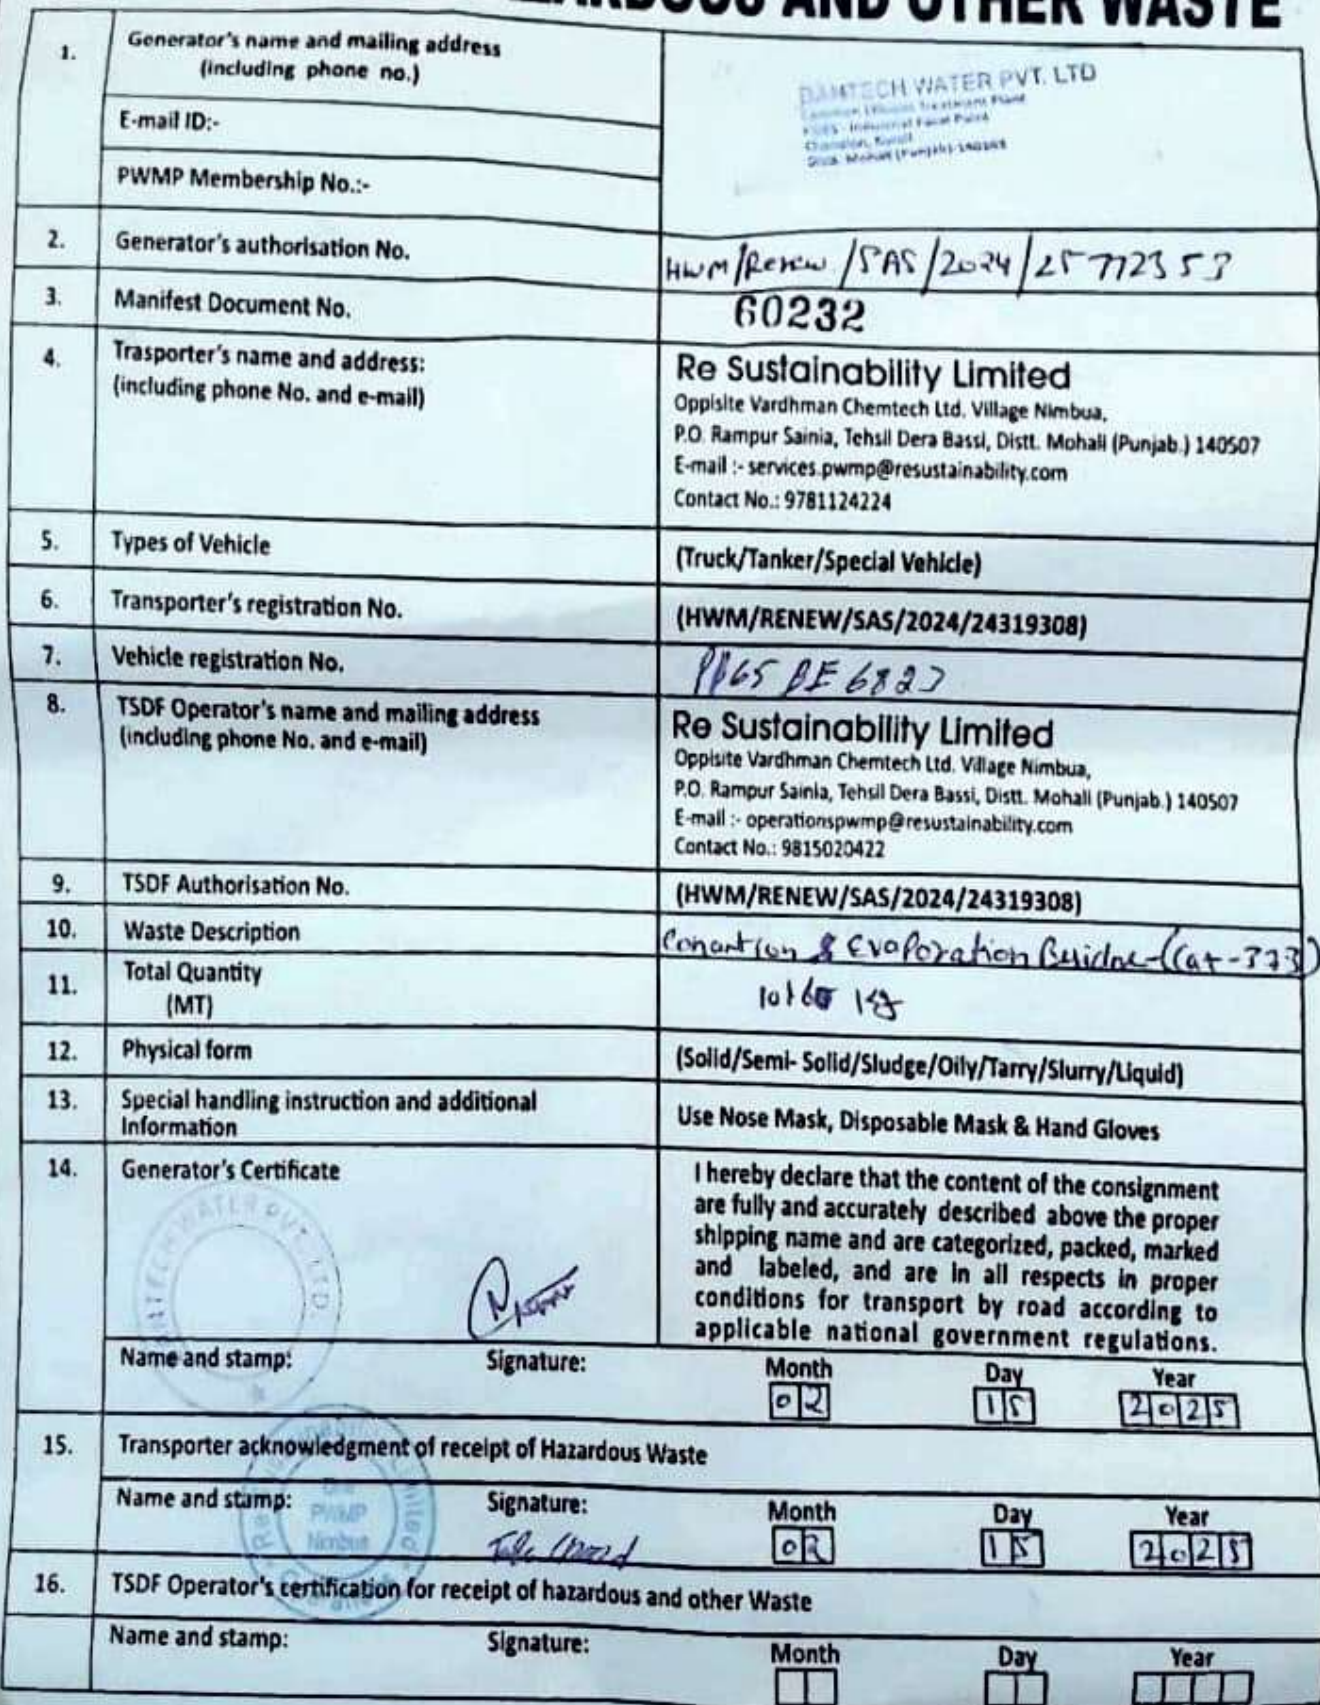 HAZARDOUS AND OTHER WASTE
1. Generator's name and mailing address
(including phone no.)
DAMTECH WATER PVT. LTD
Common Effluent Treatment Plant
Industrial Focal Point
Chanalon, Kurali
Distt. Mohali (Punjab)-140103
E-mail ID:-
PWMP Membership No.:-
2. Generator's authorisation No. HWM/Renew/SAS/2024/25772353
3. Manifest Document No. 60232
4. Trasporter's name and address:
(including phone No. and e-mail)
Re Sustainability Limited
Oppisite Vardhman Chemtech Ltd. Village Nimbua,
P.O. Rampur Sainia, Tehsil Dera Bassi, Distt. Mohali (Punjab.) 140507
E-mail :- services.pwmp@resustainability.com
Contact No.: 9781124224
5. Types of Vehicle (Truck/Tanker/Special Vehicle)
6. Transporter's registration No. (HWM/RENEW/SAS/2024/24319308)
7. Vehicle registration No. PB65 BE 6823
8. TSDF Operator's name and mailing address
(including phone No. and e-mail)
Re Sustainability Limited
Oppisite Vardhman Chemtech Ltd. Village Nimbua,
P.O. Rampur Sainia, Tehsil Dera Bassi, Distt. Mohali (Punjab.) 140507
E-mail :- operationspwmp@resustainability.com
Contact No.: 9815020422
9. TSDF Authorisation No. (HWM/RENEW/SAS/2024/24319308)
10. Waste Description & Evaporation Residue-(Cat-373)
11. Total Quantity
(MT)
10160 Kg
12. Physical form (Solid/Semi- Solid/Sludge/Oily/Tarry/Slurry/Liquid)
13. Special handling instruction and additional
Information
Use Nose Mask, Disposable Mask & Hand Gloves
14. Generator's Certificate
I hereby declare that the content of the consignment
are fully and accurately described above the proper
shipping name and are categorized, packed, marked
and labeled, and are in all respects in proper
conditions for transport by road according to
applicable national government regulations.
WATER PVT. LTD.
Name and stamp: Signature: Month Day Year
02 15 2025
15. Transporter acknowledgment of receipt of Hazardous Waste
Name and stamp: Signature: Month Day Year
PWMP
Nimbua
02 15 2025
16. TSDF Operator's certification for receipt of hazardous and other Waste
Name and stamp: Signature: Month Day Year